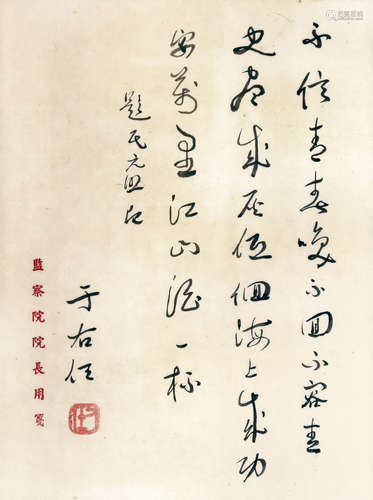 不信青春喚不回不容青
史盡成灰低佪海上成功
宴萬里江山酒一杯
題民元照
于右任
監察院院長用箋